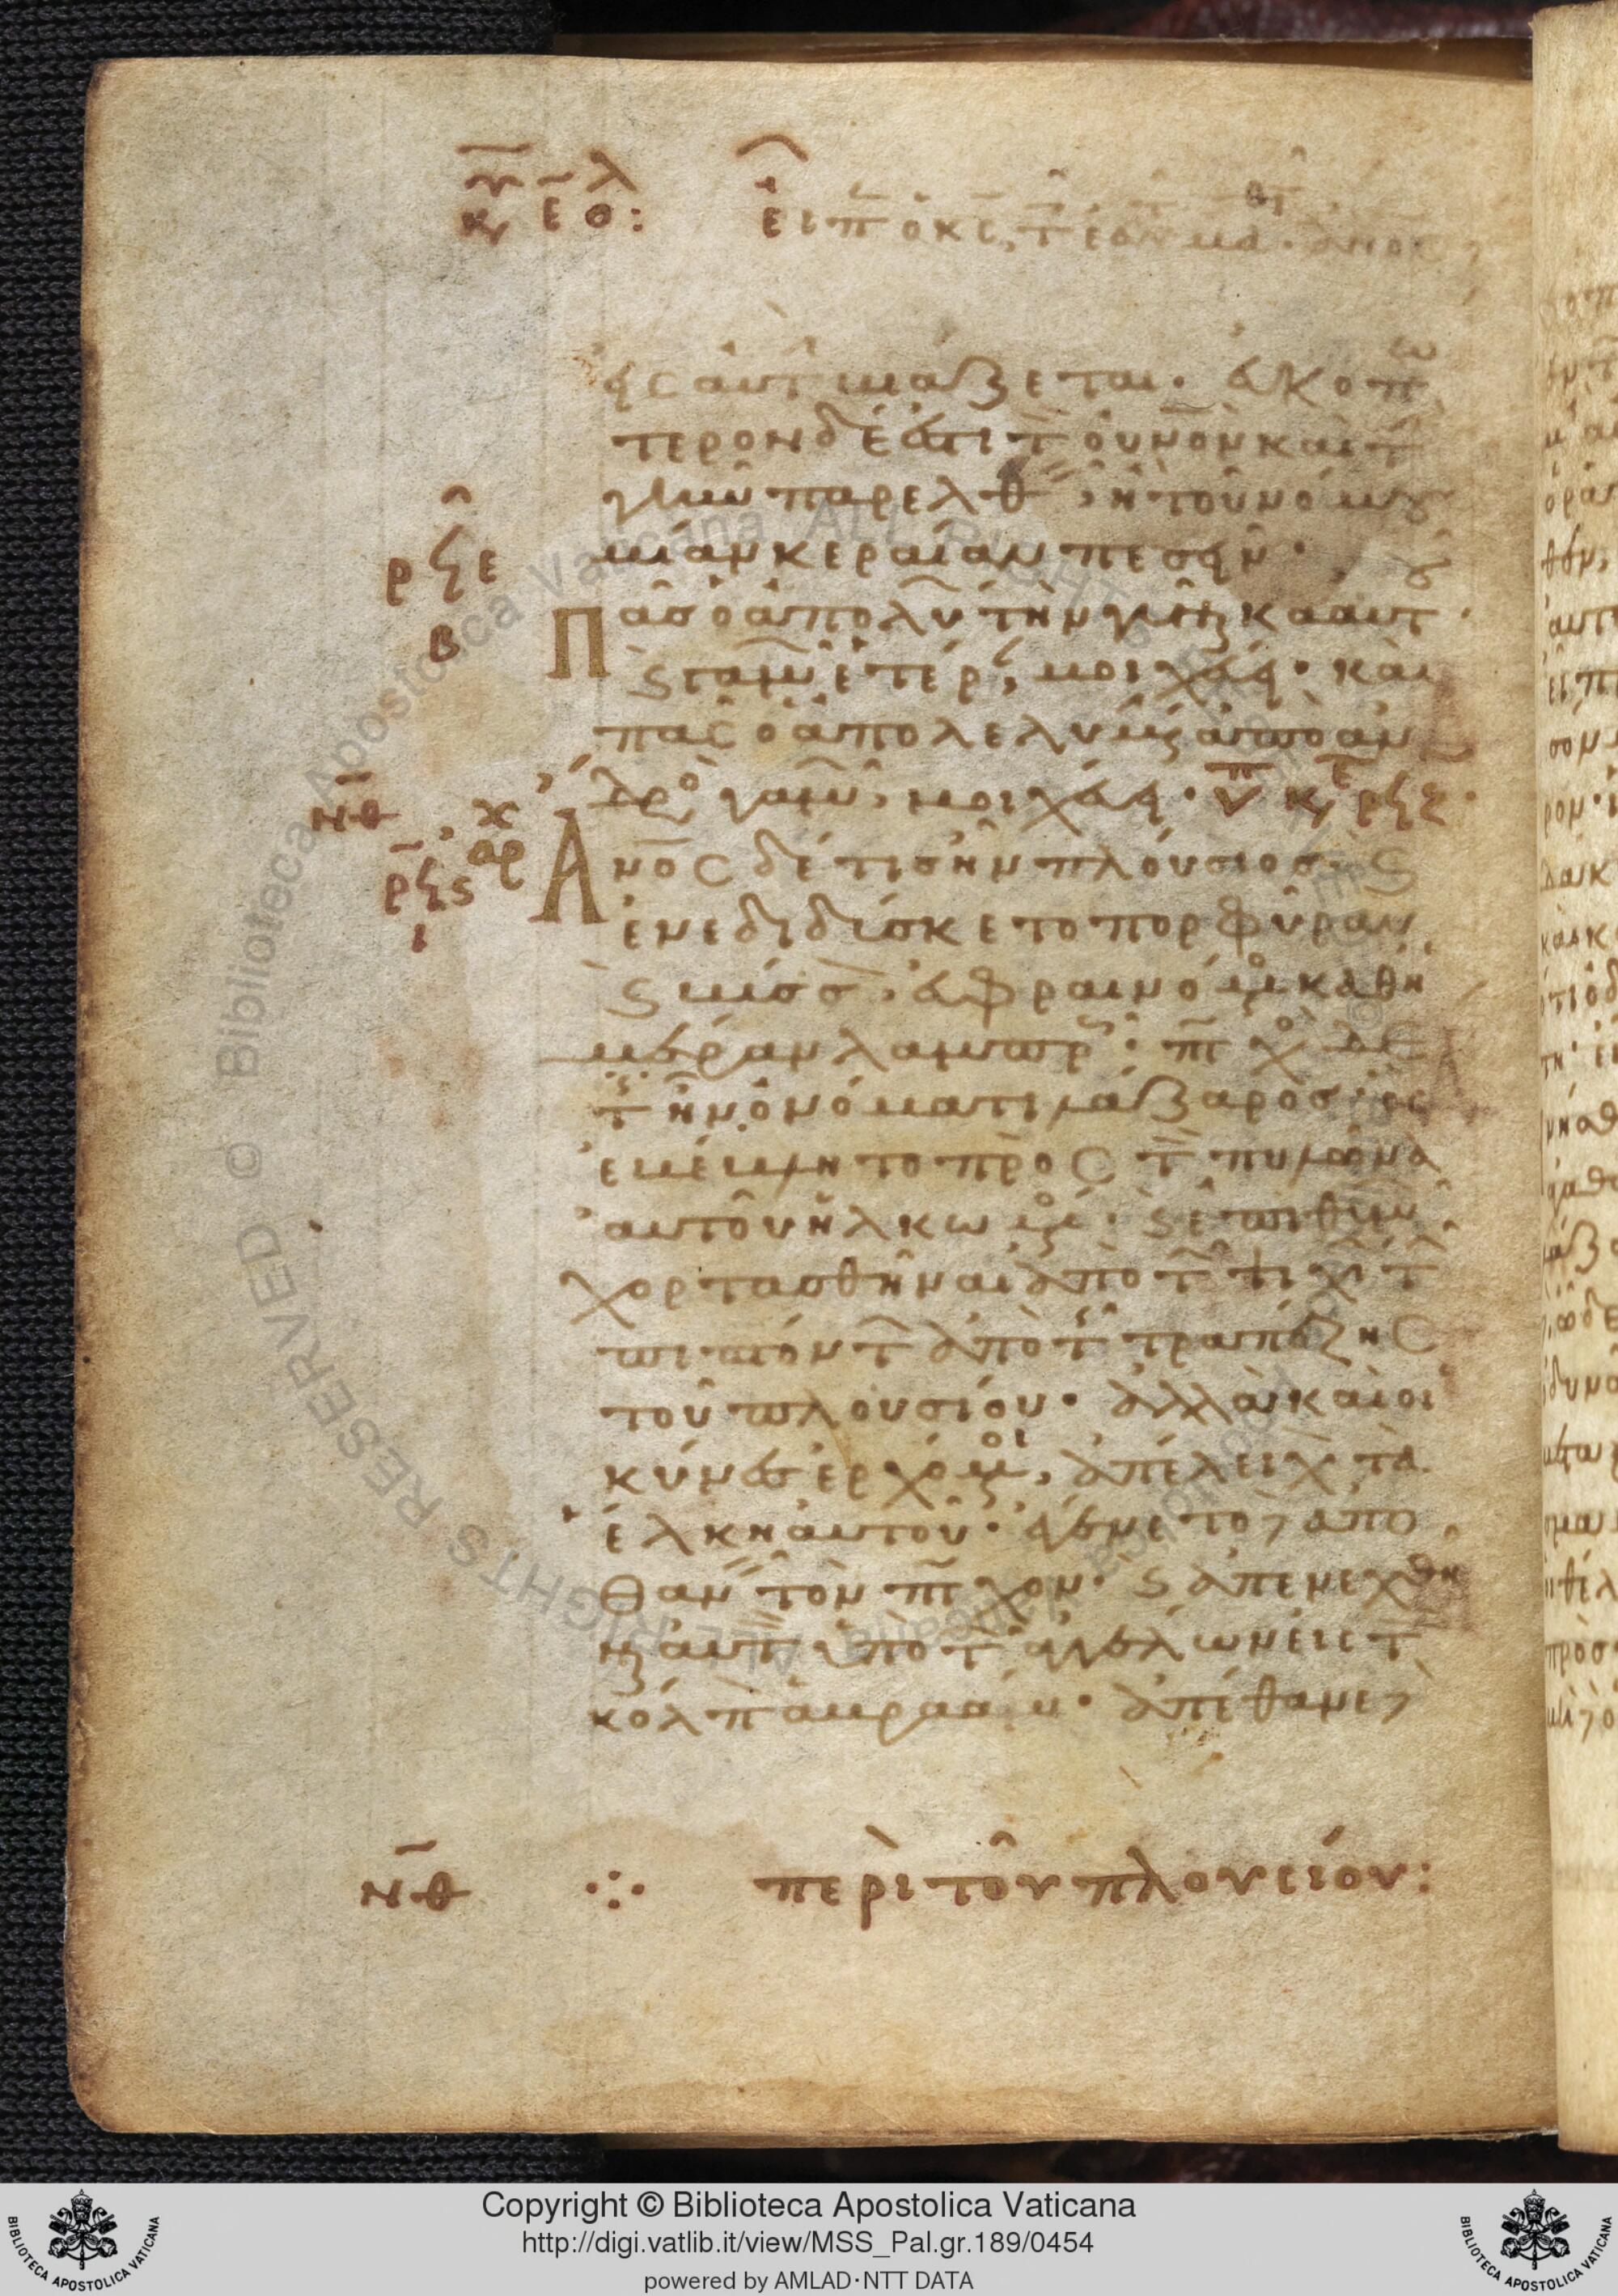 κυ ε ο:
ειπ ο κς, τ
εἰς αὐτ βιάζεται. εὐκοπώ
τερον δέ ἐστι τ οὐνον καὶ τ
γῆν παρελθ, ἢ τοῦ νόμου
ρϟε μίαν κεραίαν πεσεῖν.
β Πᾶς ὁ ἀπολυ τὴν γυναῖκα αυτ
ϛ γαμῶ ετέρ, μοιχεύει. καὶ
πᾶς ὁ ἀπολελυμ ἀπὸ ἀν
νθ δρὸ γαμῶ, μοιχεύει.
ρϟϛ αρχ Ἄνος δέ τις ἦν πλούσιος. ϛ
ι ἐνεδιδύσκετο πορφύραν
ϛ βύσσ, εὐφραινόμ καθη
μέραν λαμπρ. πτ χ δέ
τ ἦν ὀνόματι λάζαρος. ὃς
ἐβέβλητο πρὸς τ πυλῶνα
αὐτοῦ ἡλκωμ. ϛ ἐπιθυμ
χορτασθῆναι ἀπὸ τ ψιχί τ
πιπτόντ ἀπὸ τ τραπέζης
τοῦ πλουσίου. ἀλλὰ καὶ οἱ
κύνες ἐρχόμοι, ἀπέλειχ τὰ
ἕλκη αὐτοῦ. ἐγένετο δὲ ἀπο
θαν τὸν πτχον. ϛ ἀπενεχθη
ναι αυτ ὑπὸ τ ἀγγέλων εἰς τ
κόλπ ἀβραάμ. ἀπέθανε δὲ
νθ περὶ τοῦ πλουσίου:
Copyright © Biblioteca Apostolica Vaticana
http://digi.vatlib.it/view/MSS_Pal.gr.189/0454
powered by AMLAD·NTT DATA
BIBLIOTECA APOSTOLICA VATICANA
BIBLIOTECA APOSTOLICA VATICANA
© Biblioteca Apostolica Vaticana ALL RIGHTS RESERVED